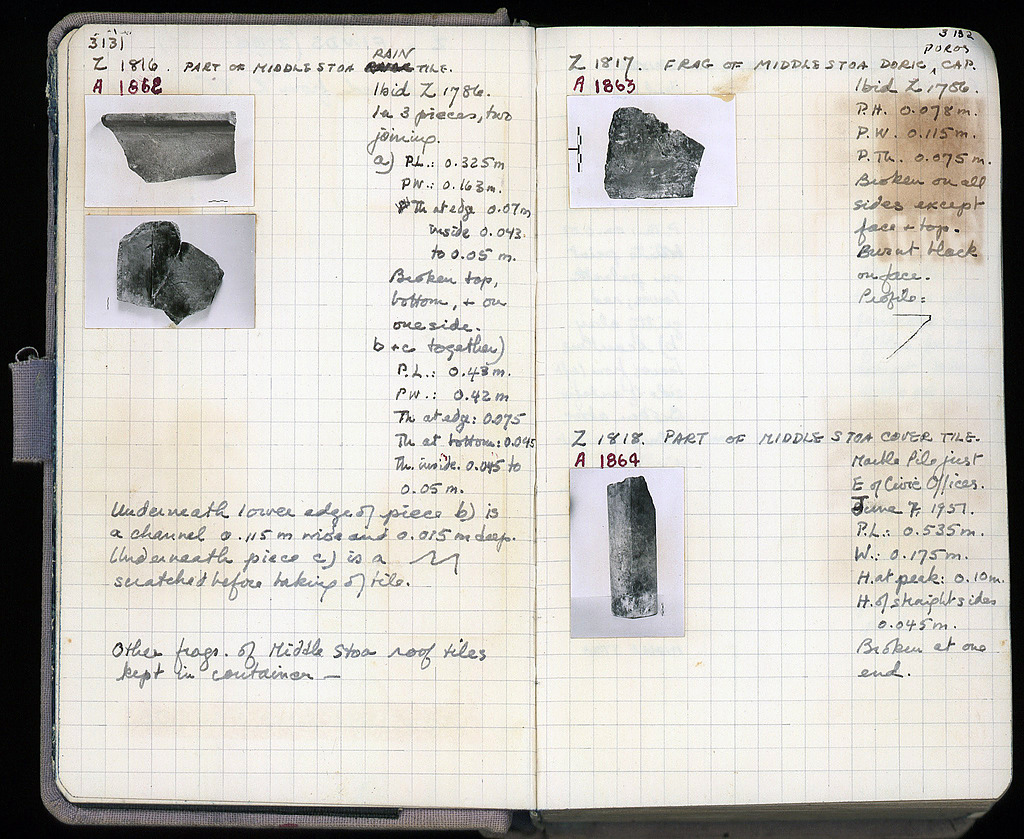 3131
Z 1816. PART OF MIDDLE STOA RAIN TILE.
A 1862
Ibid Z 1786.
In 3 pieces, two
joining.
a) P.L.: 0.325m
PW.: 0.163m.
Th at edge 0.07m
inside 0.043
to 0.05 m.
Broken top,
bottom, + on
one side.
b + c together)
P.L.: 0.43m.
PW.: 0.42m
Th at edge: 0.075
Th at bottom: 0.045
Th. inside. 0.045 to
0.05 m.
Underneath lower edge of piece b) is
a channel 0.115 m wide and 0.015 m deep.
Underneath piece c) is a
scratched before baking of tile.
Other frags. of Middle Stoa roof tiles
kept in container —
3132
Z 1817. FRAG OF MIDDLE STOA DORIC POROS CAP.
A 1863
Ibid Z 1786.
P.H. 0.078m.
P.W. 0.115m.
P.Th. 0.075m.
Broken on all
sides except
face + top.
Burnt black
on face.
Profile:
Z 1818. PART OF MIDDLE STOA COVER TILE.
A 1864
Marble Pile just
E of Civic Offices.
June 7, 1951.
P.L.: 0.535m.
W.: 0.175m.
H. at peak: 0.10m.
H. of straight sides
0.045m.
Broken at one
end.